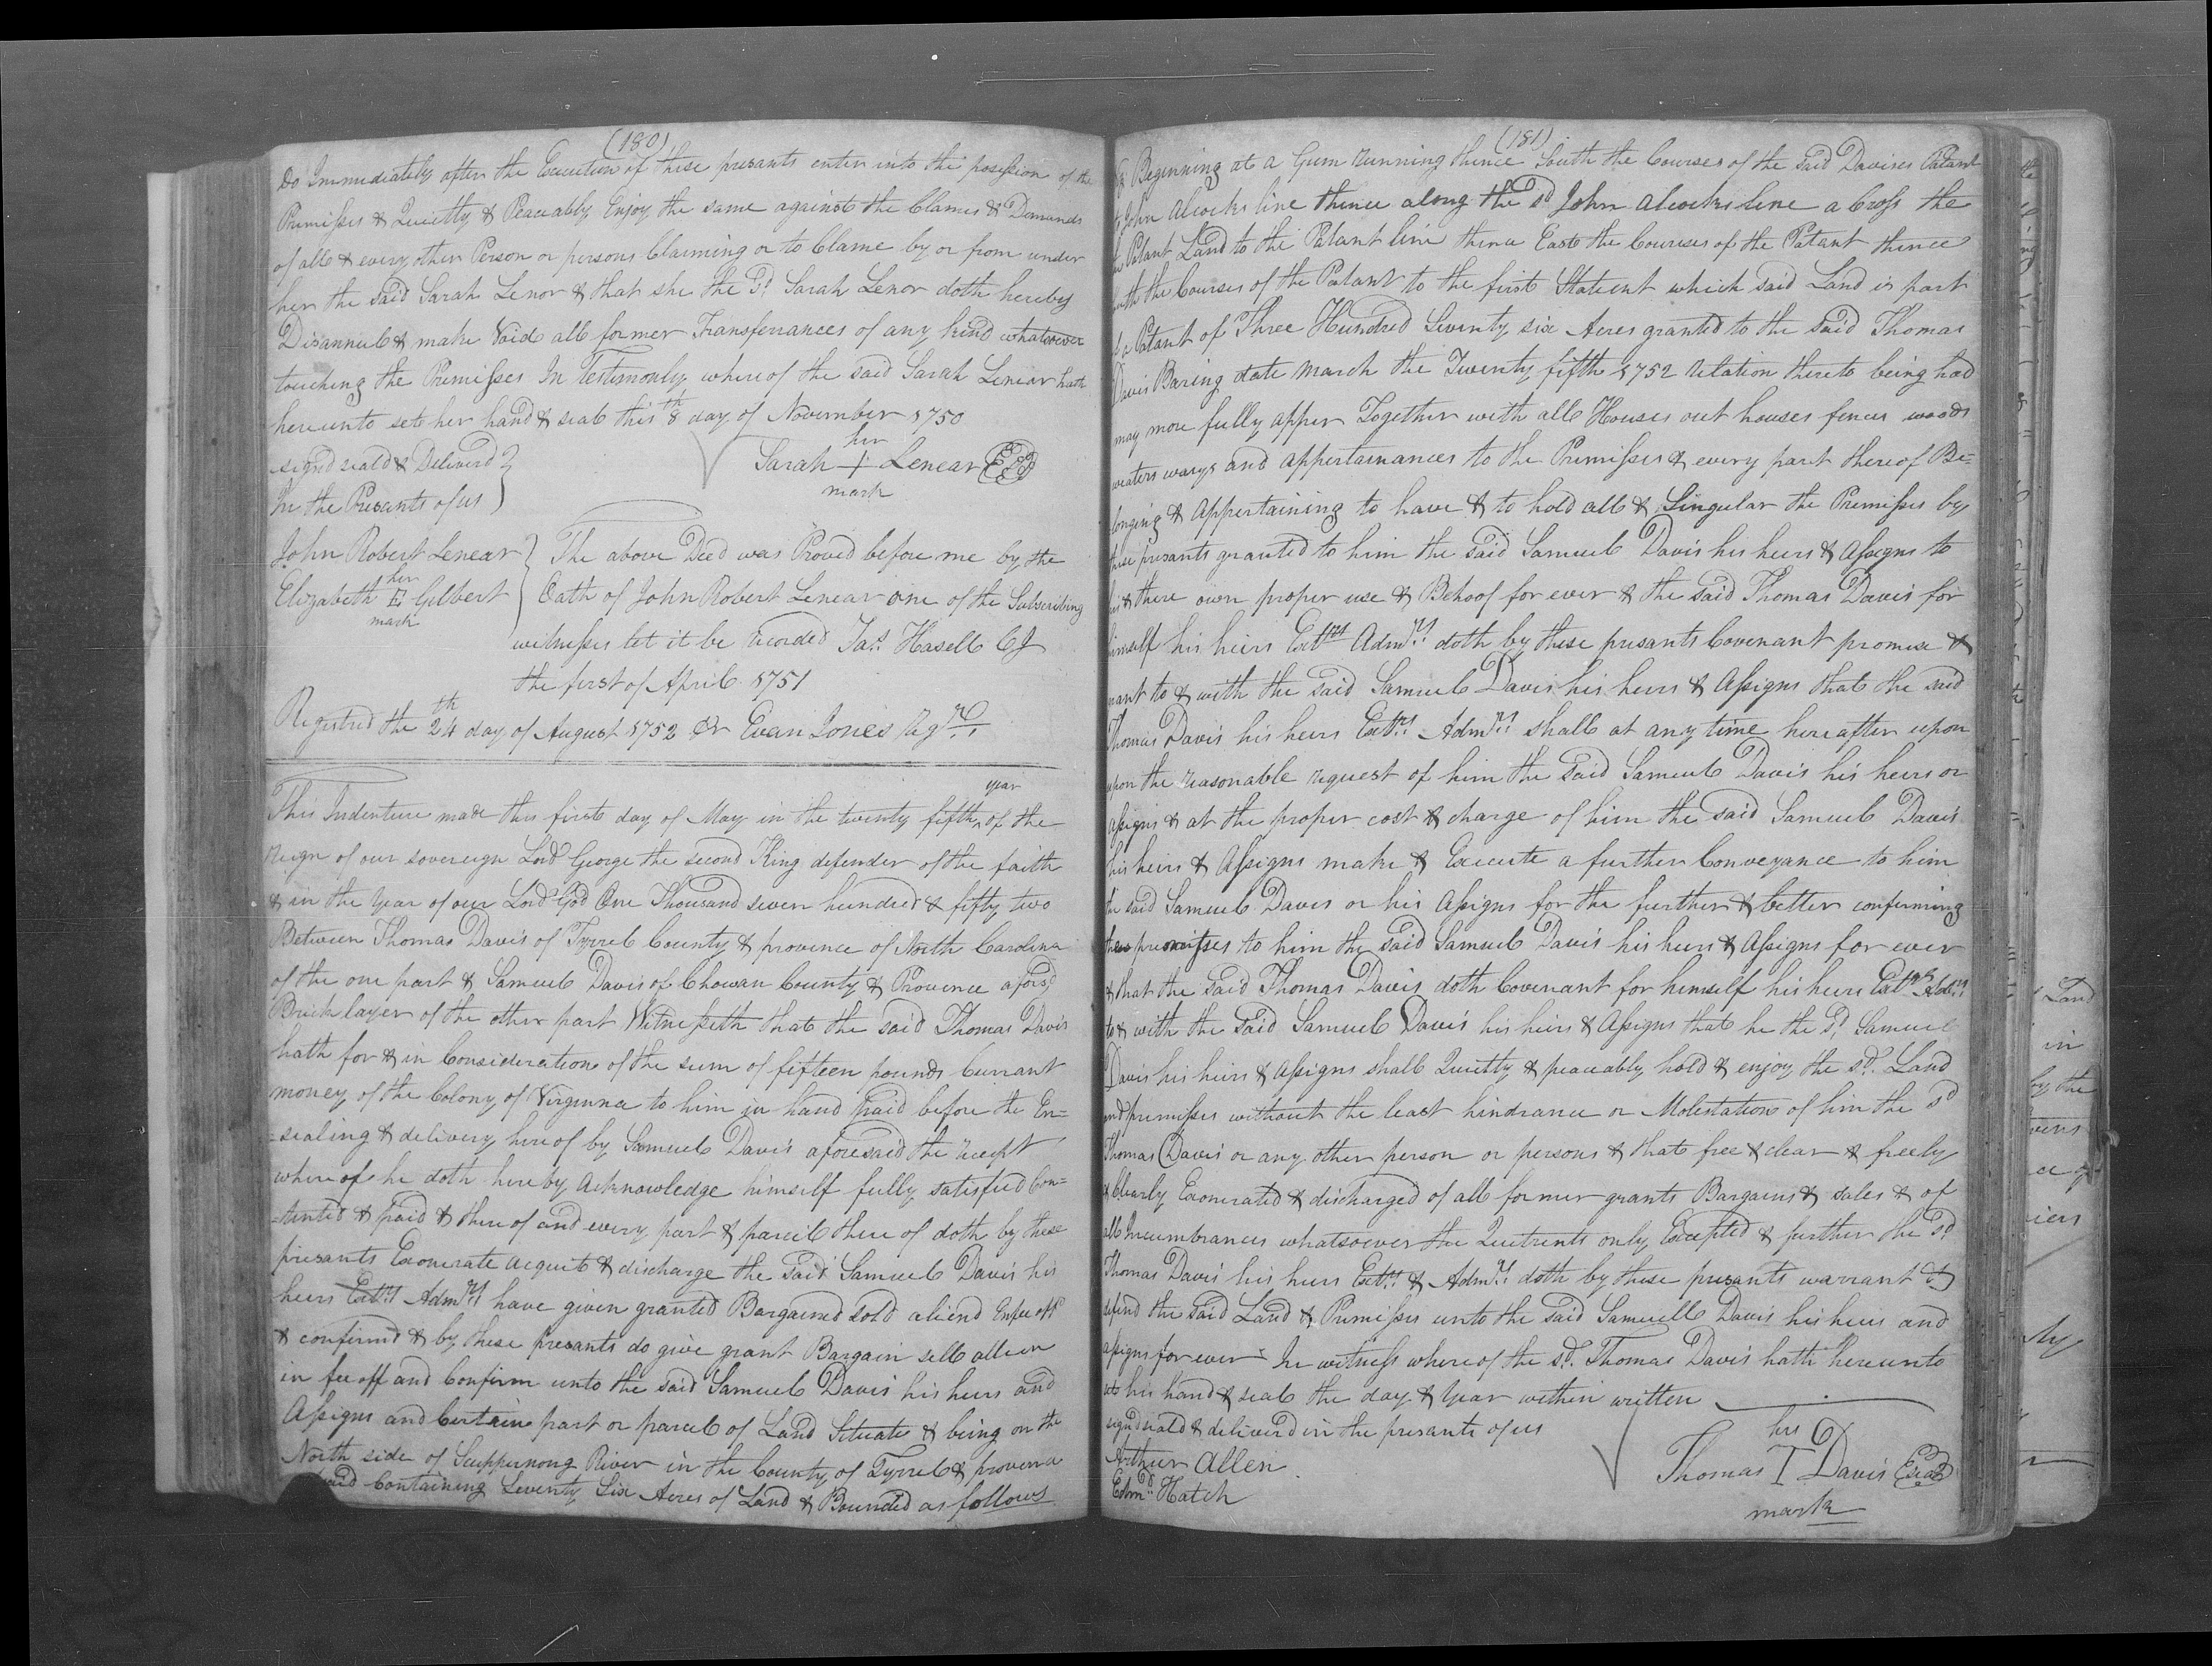 (180)
Do Immediately after the Execution of these presants enter into the possession of the
Premisses & Quiettly & Peaceably Enjoy the same against the Clames & Demands
of all & every other Person or persons Claiming or to Clame by or from under
her the said Sarah Lenor & that she the Sd. Sarah Lenor doth hereby
Disannul & make Void all former Transferrances of any kind whatsoever
touching the Premisses In Testimonly whereof the said Sarah Lenear hath
hereunto set her hand & seal this 8th day of November 1750
signd seald & Deliverd
In the Presants of us
her
Sarah + Lenear Seal
mark
John Robert Lenear
Elizabeth E Gilbert
her
mark
The above Deed was Proved before me by the
Oath of John Robert Lenear one of the Subscribing
witnesses let it be recorded Jas. Hasell CJ
the first of April 1751
Registred the 24th day of August 1752 Pr Evan Jones Regr.
This Indenture made this first day of May in the twenty fifth year of the
reign of our sovereign Lord George the second King defender of the faith
& in the Year of our Lord God One Thousand seven hundred & fifty two
Between Thomas Davis of Tyrrel County & provence of North Carolina
of the one part & Samuel Davis of Chowan County & Provence aforsd
Brick layer of the other part Witnesseth that the said Thomas Davis
hath for & in Consideration of the sum of fifteen pounds Currant
money of the Colony of Virginna to him in hand paid before the En=
=sealing & delivery hereof by Samuel Davis aforesaid the recept
where of he doth hereby Acknowledge himself fully satisfied Con=
=tented & paid & there of and every part & parcel there of doth by these
presants Exonerate acquit & discharge the said Samuel Davis his
heirs Extrs Admrs have given granted Bargained sold aliend Enfeoffd
& confirmd & by these presants do give grant Bargain sell allien
in feeoff and Confirm unto the said Samuel Davis his heirs and
Assigns and Certain part or parcel of Land Situate & being on the
North side of Scuppernong River in the County of Tyrrel & provence
Containing Seventy Six Acres of Land & Bounded as follows
(181)
Beginning at a Gum running thence South the Courses of the said Davises Patant
to John Alcocks line thence along the sd John Alcocks line a Cross the
Patant Land to the Patant line thence East the Courses of the Patant thence
the Courses of the Patant to the first Statient which said Land is part
of a Patant of Three Hundred Seventy six Acres granted to the said Thomas
Davis Baring date March the Twenty fifth 1752 relation thereto being had
may more fully apper Together with all Houses out houses fences woods
waters ways and appertainances to the Premisses & every part thereof Be=
longing & Appertaining to have & to hold all & Singular the Premisses by
these presants granted to him the said Samuel Davis his heirs & Assigns to
his & there own proper use & Behoof for ever & the said Thomas Davis for
himself his heirs Extrs Admrs doth by these presants Covenant promise &
rant to & with the said Samuel Davis his heirs & Assigns that the said
Thomas Davis his heirs Extrs Admrs shall at any time hereafter upon
upon the reasonable request of him the said Samuel Davis his heirs or
assigns & at the proper cost & charge of him the said Samuel Davis
his heirs & Assigns make & Execute a further Conveyance to him
the said Samuel Davis or his Assigns for the further & better confirming
these premisses to him the said Samuel Davis his heirs & Assigns for ever
& that the said Thomas Davis doth Covenant for himself his heirs Extrs Admrs
to & with the said Samuel Davis his heirs & Assigns that he the Sd. Samuel
Davis his heirs & Assigns shall Quietly & peaceably hold & enjoy the sd. Land
and premisses without the least hindrance or Molestation of him the sd
Thomas Davis or any other person or persons & that free & clear & freely
& Clearly Exonerated & discharged of all former grants Bargains & sales & of
all Incumbrances whatsoever the Quitrents only Excepted & further the Sd
Thomas Davis his heirs Extrs & Admrs doth by these presants warrant &
defend the said Land & Premisses unto the said Samuell Davis his heirs and
assigns for ever In witness where of the sd. Thomas Davis hath hereunto
set his hand & seal the day & Year within written
signd seald & deliverd in the presants of us
Arthur Allen
Edmd. Hatch
his
Thomas T Davis Seal
mark
Land
in
by the